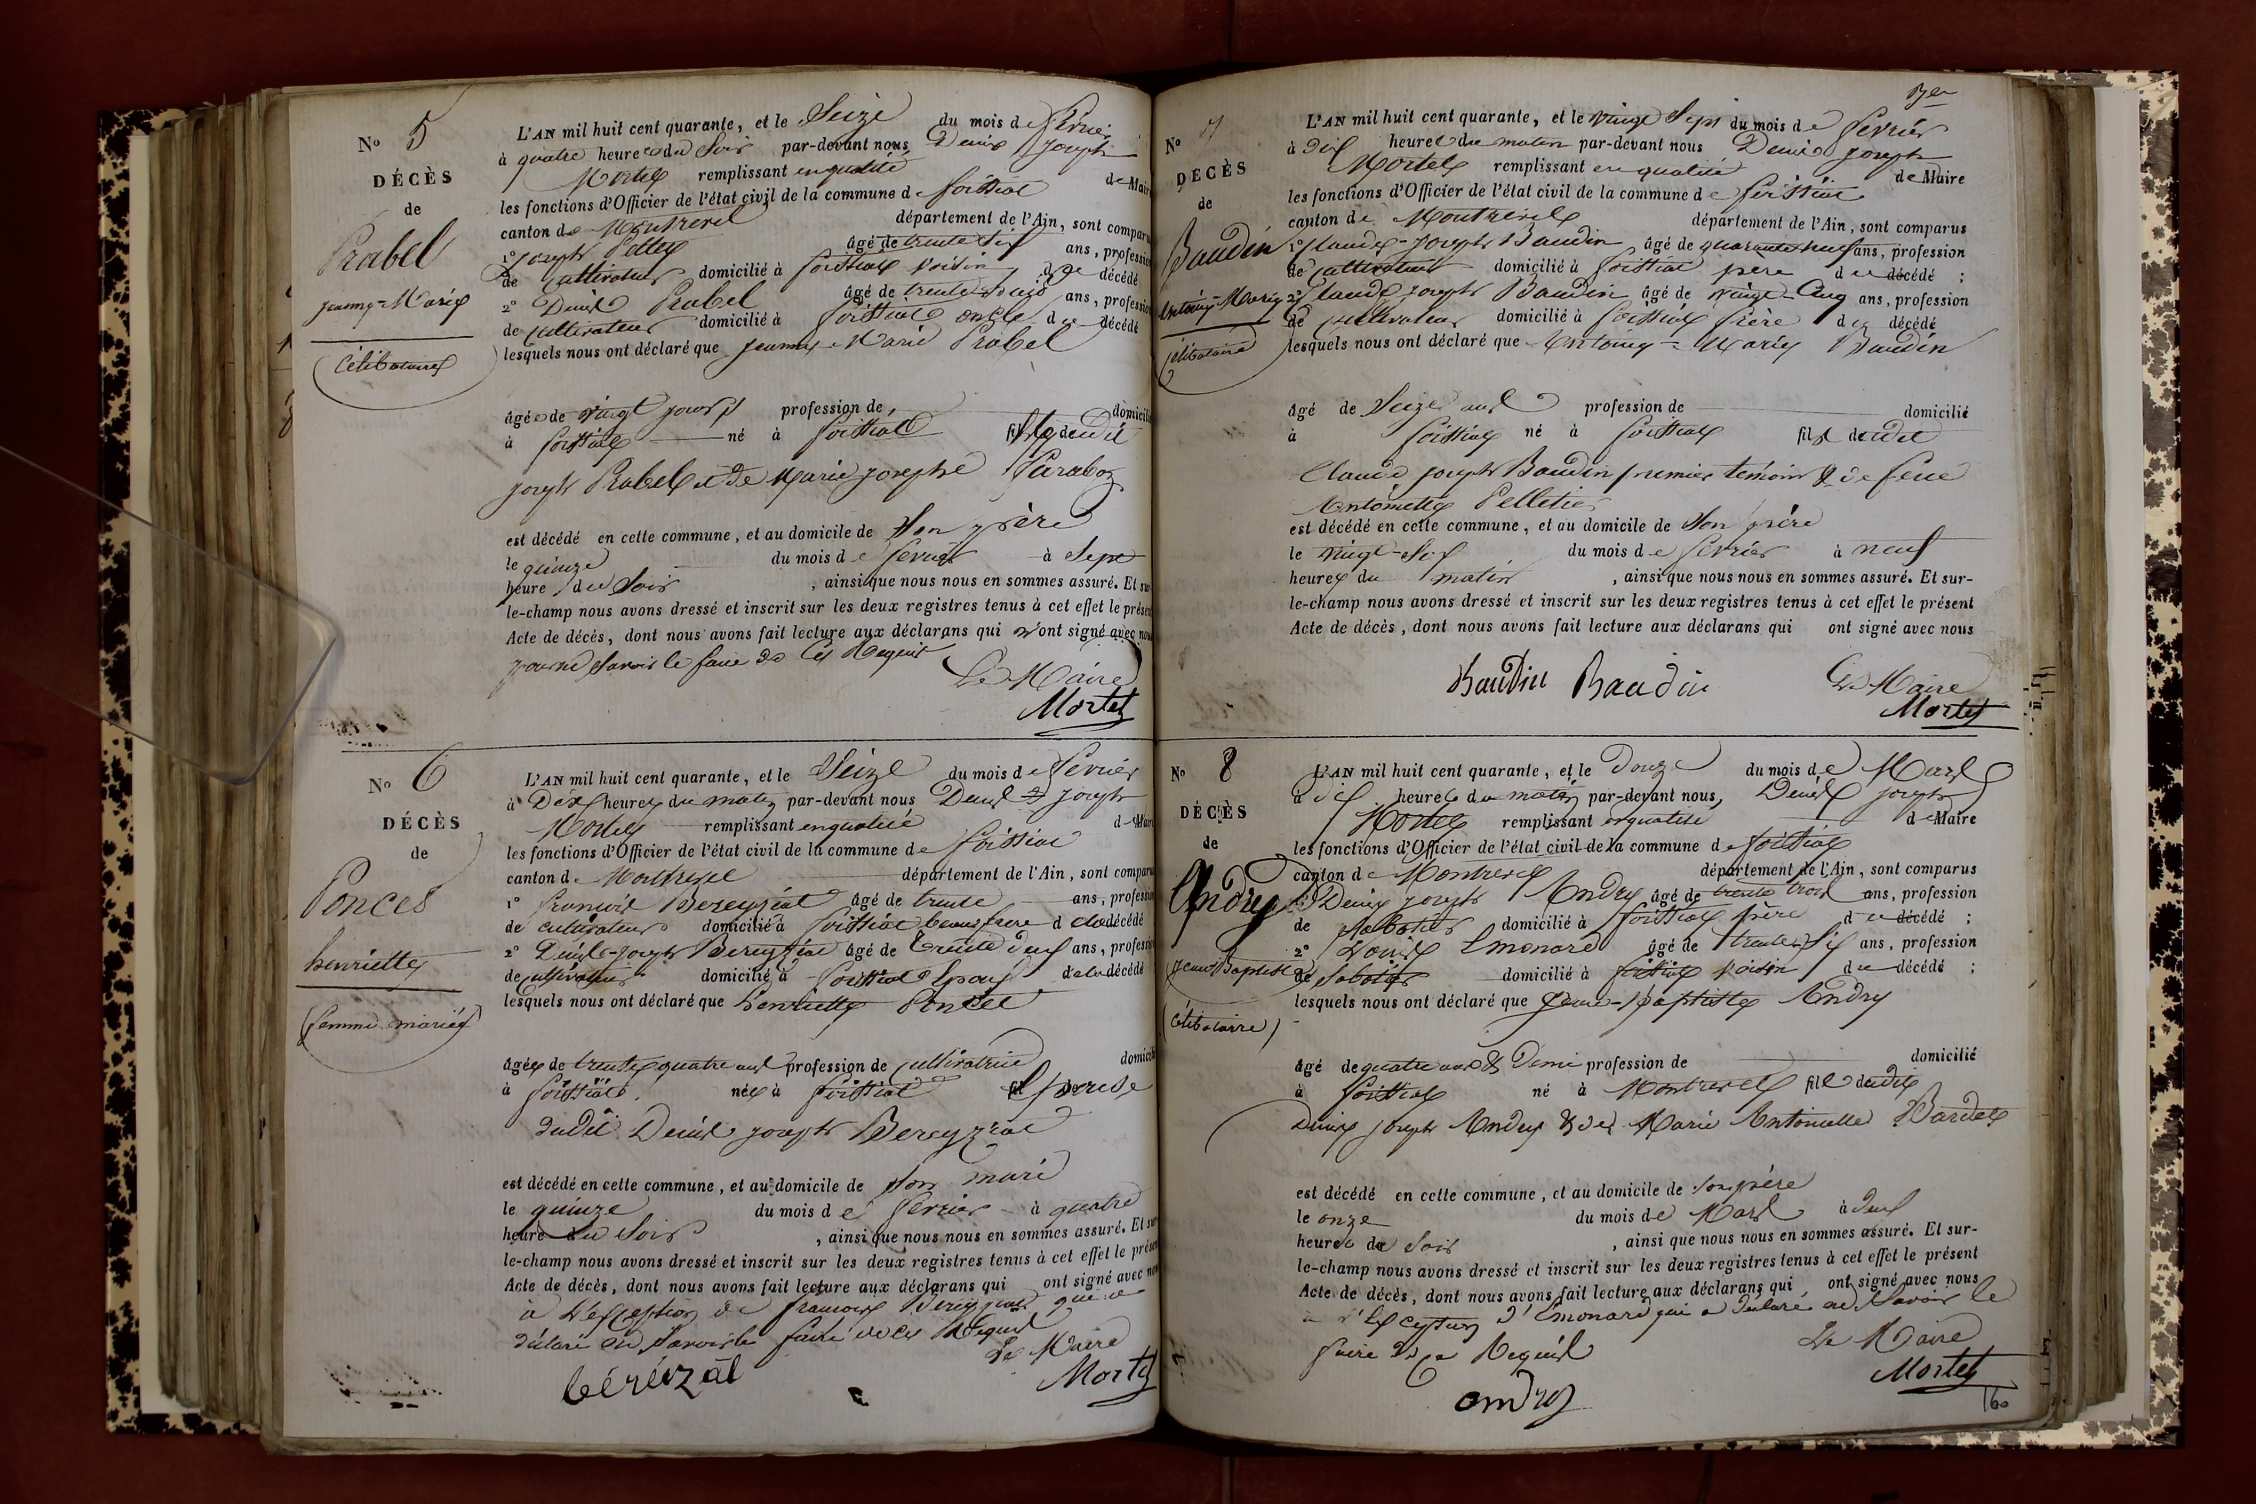 No 5
DÉCÈS
de
Prabel
jeanny=Marie
Célibataire
L'AN mil huit cent quarante, et le Seize du mois de février
à quatre heures du Soir par-devant nous Denis Joseph
Mortel remplissant en qualité de Maire
les fonctions d'Officier de l'état civil de la commune de foissiat
canton de Montrevel département de l'Ain, sont comparus
1° joseph âgé de trente six ans, profession
de cultivateur domicilié à foissiat voisin du décédé
2° Denis Prabel âgé de trente ans, profession
de Cultivateur domicilié à foissiat oncle du décédé
lesquels nous ont déclaré que jeanny=Marie Prabel
âgé de vingt jours profession de domicilié
à foissiat né à foissiat fils dudit
joseph Prabel et de Marie josephe
est décédé en cette commune, et au domicile de Son père
le quinze du mois de février à Sept
heure du Soir, ainsi que nous nous en sommes assuré. Et sur-
le-champ nous avons dressé et inscrit sur les deux registres tenus à cet effet le présent
Acte de décès, dont nous avons fait lecture aux déclarans qui n'ont signé avec nous
pour ne Savoir le faire de Ces Requis
Le Maire
Mortel
No 6
DÉCÈS
de
Poncet
henriette
femme mariée
L'AN mil huit cent quarante, et le Seize du mois de février
à Dix heures du matin par-devant nous Denis joseph
Mortel remplissant en qualité de Maire
les fonctions d'Officier de l'état civil de la commune de foissiat
canton de Montrevel département de l'Ain, sont comparus
1° francois Bereyziat âgé de trente ans, profession
de cultivateur domicilié à foissiat beau frere de la décédé
2° Denis-joseph Bereyziat âgé de trente deux ans, profession
de cultivateur domicilié à foissiat Epoux de la décédé
lesquels nous ont déclaré que henriette Poncet
âgée de trente quatre ans profession de cultivatrice domicilié
à foissiat née à foissiat Epouse
dudit Denis joseph Bereyziat
est décédé en cette commune, et au domicile de Son mari
le quinze du mois de février à quatre
heure du Soir, ainsi que nous nous en sommes assuré. Et sur-
le-champ nous avons dressé et inscrit sur les deux registres tenus à cet effet le présent
Acte de décès, dont nous avons fait lecture aux déclarans qui ont signé avec nous
à L'exception de francois Bereyziat qui a
déclaré ne Savoir le faire de ce Requis
Le Maire
béréizat Mortel
No 7
DÉCÈS
de
Baudin
Antoine=Marie
célibataire
L'AN mil huit cent quarante, et le vingt Sept du mois de février
à dix heures du matin par-devant nous Denis joseph
Mortel remplissant en qualité de Maire
les fonctions d'Officier de l'état civil de la commune de foissiat
canton de Montrevel département de l'Ain, sont comparus
1° Claude-joseph Baudin âgé de quarante neuf ans, profession
de cultivateur domicilié à foissiat père du décédé ;
2° Claude joseph Baudin âgé de vingt-Cinq ans, profession
de cultivateur domicilié à foissiat frère du décédé
lesquels nous ont déclaré que Antoine=Marie Baudin
âgé de Seize ans profession de domicilié
à foissiat né à foissiat fils dudit
Claude joseph Baudin premier témoin & de feue
Antoinette Pelletier
est décédé en cette commune, et au domicile de Son père
le vingt-Six du mois de février à neuf
heures du matin, ainsi que nous nous en sommes assuré. Et sur-
le-champ nous avons dressé et inscrit sur les deux registres tenus à cet effet le présent
Acte de décès, dont nous avons fait lecture aux déclarans qui ont signé avec nous
Baudin Baudin Le Maire
Mortel
No 8
DÉCÈS
de
Andrey
jean Baptiste
célibataire
L'AN mil huit cent quarante, et le Douze du mois de Mars
à dix heures du matin par-devant nous Denis joseph
Mortel remplissant en qualité de Maire
les fonctions d'Officier de l'état civil de la commune de foissiat
canton de Montrevel département de l'Ain, sont comparus
1° Denis joseph Andrey âgé de trente trois ans, profession
de Sabotier domicilié à foissiat père du décédé ;
2° Louis Emonard âgé de trente Six ans, profession
de Sabotier domicilié à foissiat voisin du décédé ;
lesquels nous ont déclaré que jean-baptiste Andrey
âgé de quatre ans & Demi profession de domicilié
à foissiat né à Montrevel fils dudit
Denis joseph Andrey & de Marie Antoinette
est décédé en cette commune, et au domicile de Son père
le onze du mois de Mars à deux
heures du Soir, ainsi que nous nous en sommes assuré. Et sur-
le-champ nous avons dressé et inscrit sur les deux registres tenus à cet effet le présent
Acte de décès, dont nous avons fait lecture aux déclarans qui ont signé avec nous
à l'Exception d'Emonard qui a déclaré ne Savoir le
faire de ce Requis Le Maire
Mortel